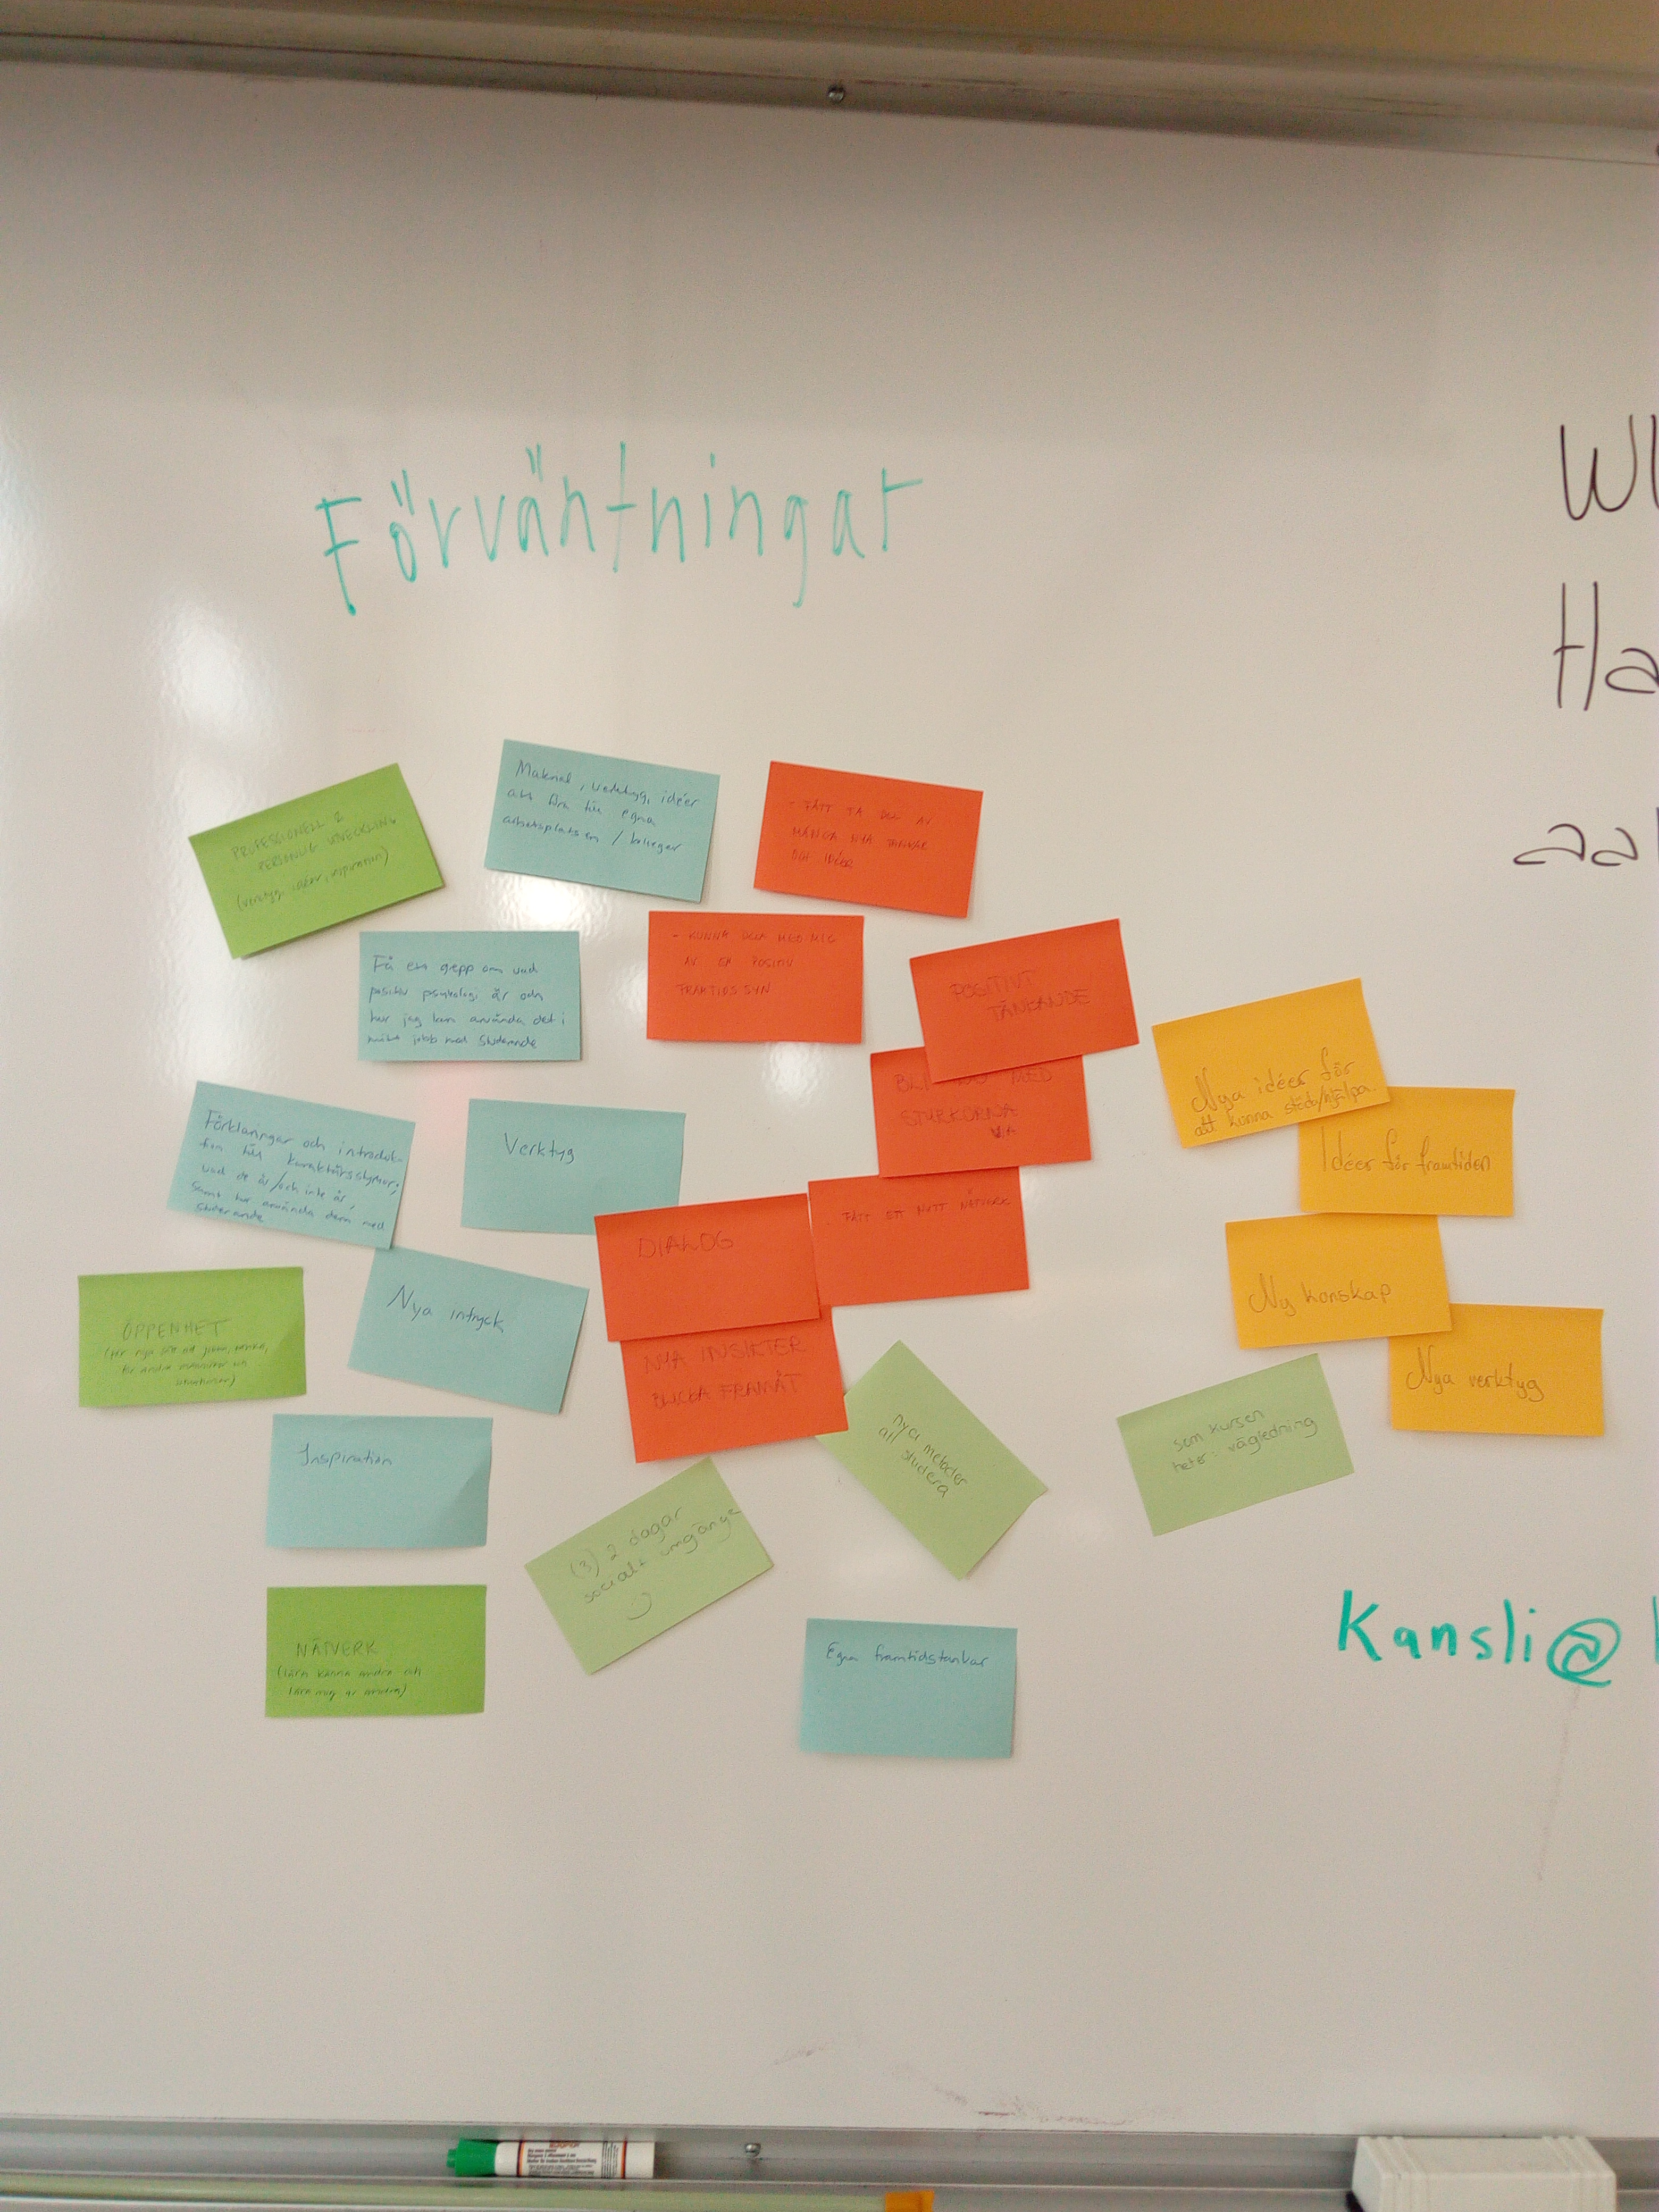 Förväntningar
Wi
Ha
aal
PROFESSIONELL &
PERSONLIG UTVECKLING
(verktyg, idéer, inspiration)
Material, verktyg, idéer
att föra till egna
arbetsplatsen / kolleger
- FÅTT TA DEL AV
MÅNGA NYA TANKAR
OCH IDÉER
Få ett grepp om vad
positiv psykologi är och
hur jag kan använda det i
mitt jobb med studerande
- KUNNA DELA MED MIG
AV EN POSITIV
FRAMTIDSSYN
POSITIVT
TÄNKANDE
BLI MED
STYRKORNA
Nya idéer för
att kunna stöda/hjälpa.
Idéer för framtiden
Förklaringar och introduk-
tion till karaktärsstyrkor;
vad de är/och inte är,
samt hur använda dem med
studerande
Verktyg
DIALOG
- FÅTT ETT NYTT NÄTVERK
Ny konskap
Nya verktyg
ÖPPENHET
(för nya sätt att
för andra människor och
situationer)
Nya intryck
NYA INSIKTER
BLICKA FRAMÅT
nya metoder
att studera
som kursen
heter: vägledning
Inspiration
(3) 2 dagar
socialt umgänge
NÄTVERK
(lära känna andra och
lära mig av andra)
Egna framtidstankar
Kansli@